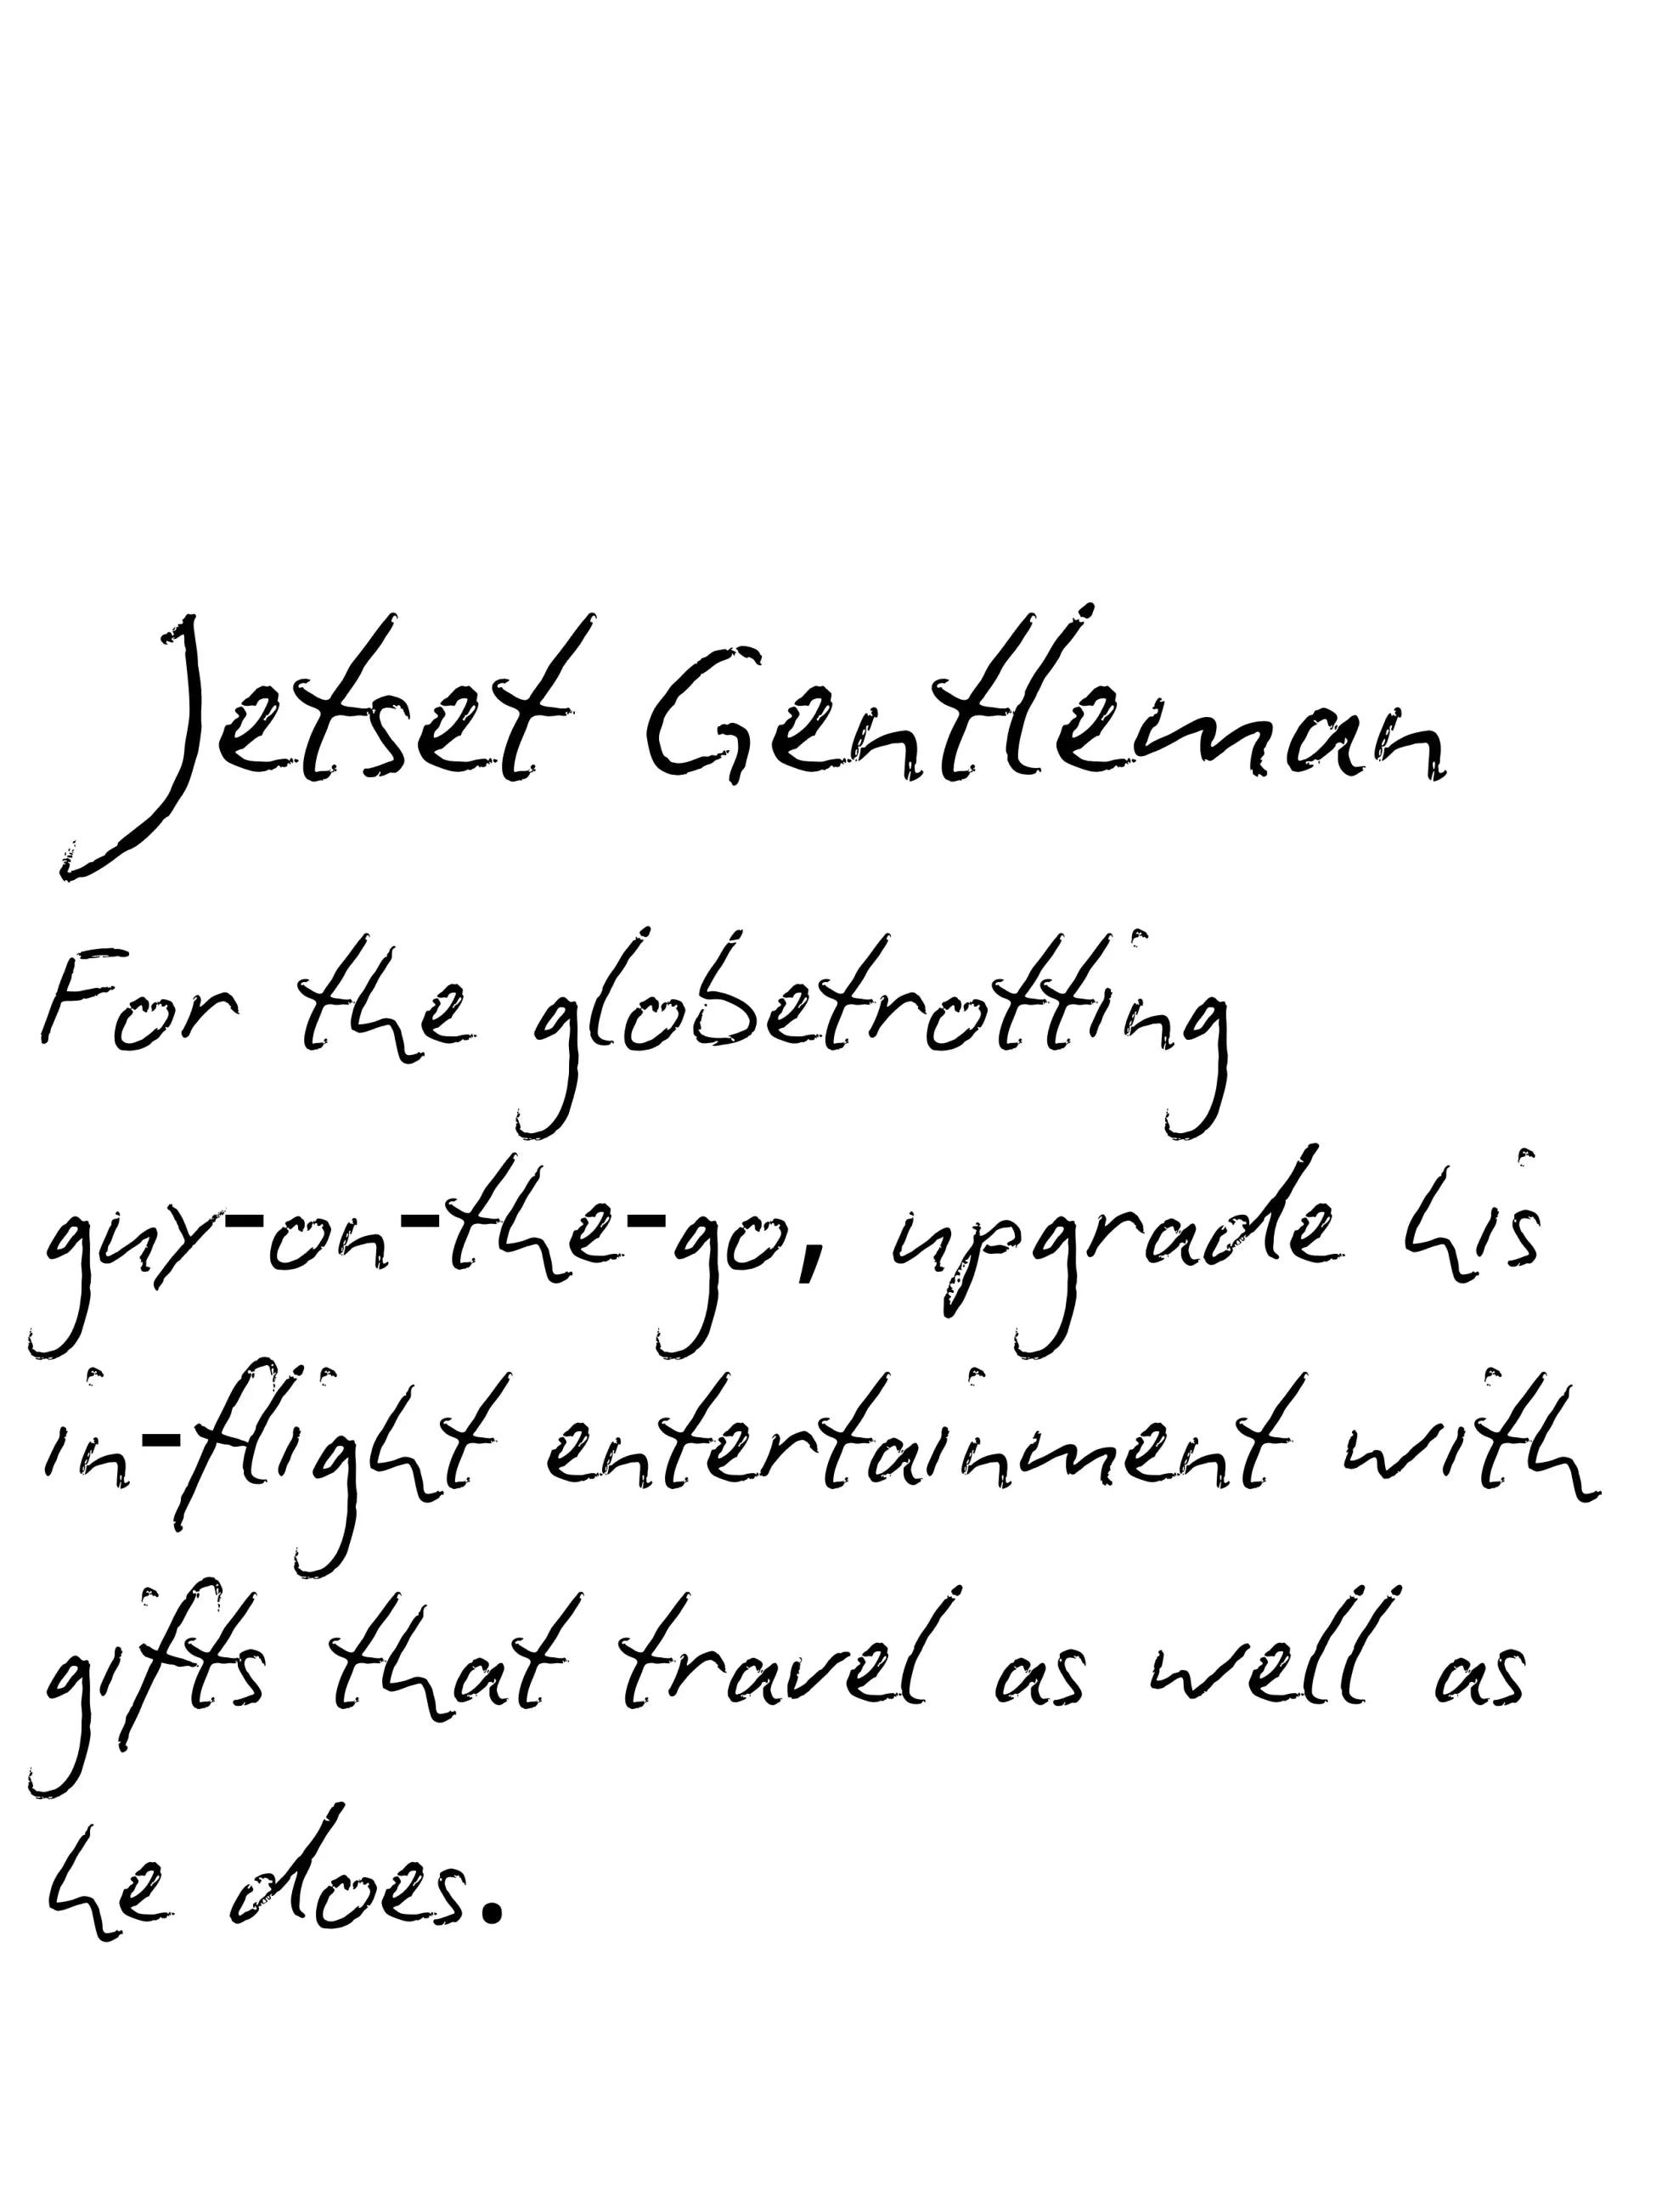 Jetset Gentleman
For the globetrotting
guy-on-the-go, upgrade his
in-flight entertainment with
gifts that travel as well as
he does.